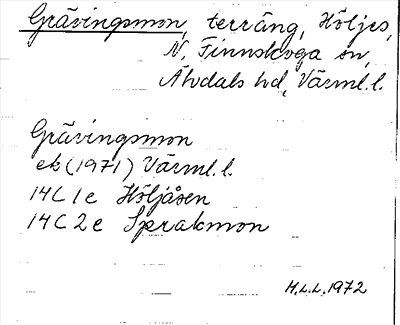 Grävingsmon, terräng, Höljes,
N. Finnskoga sn,
Älvdals hd, Värml.l.
Grävingsmon
ek (1971) Värml.l.
14C 1e Höljåsen
14C 2e Sprakmon
H.L.L. 1972